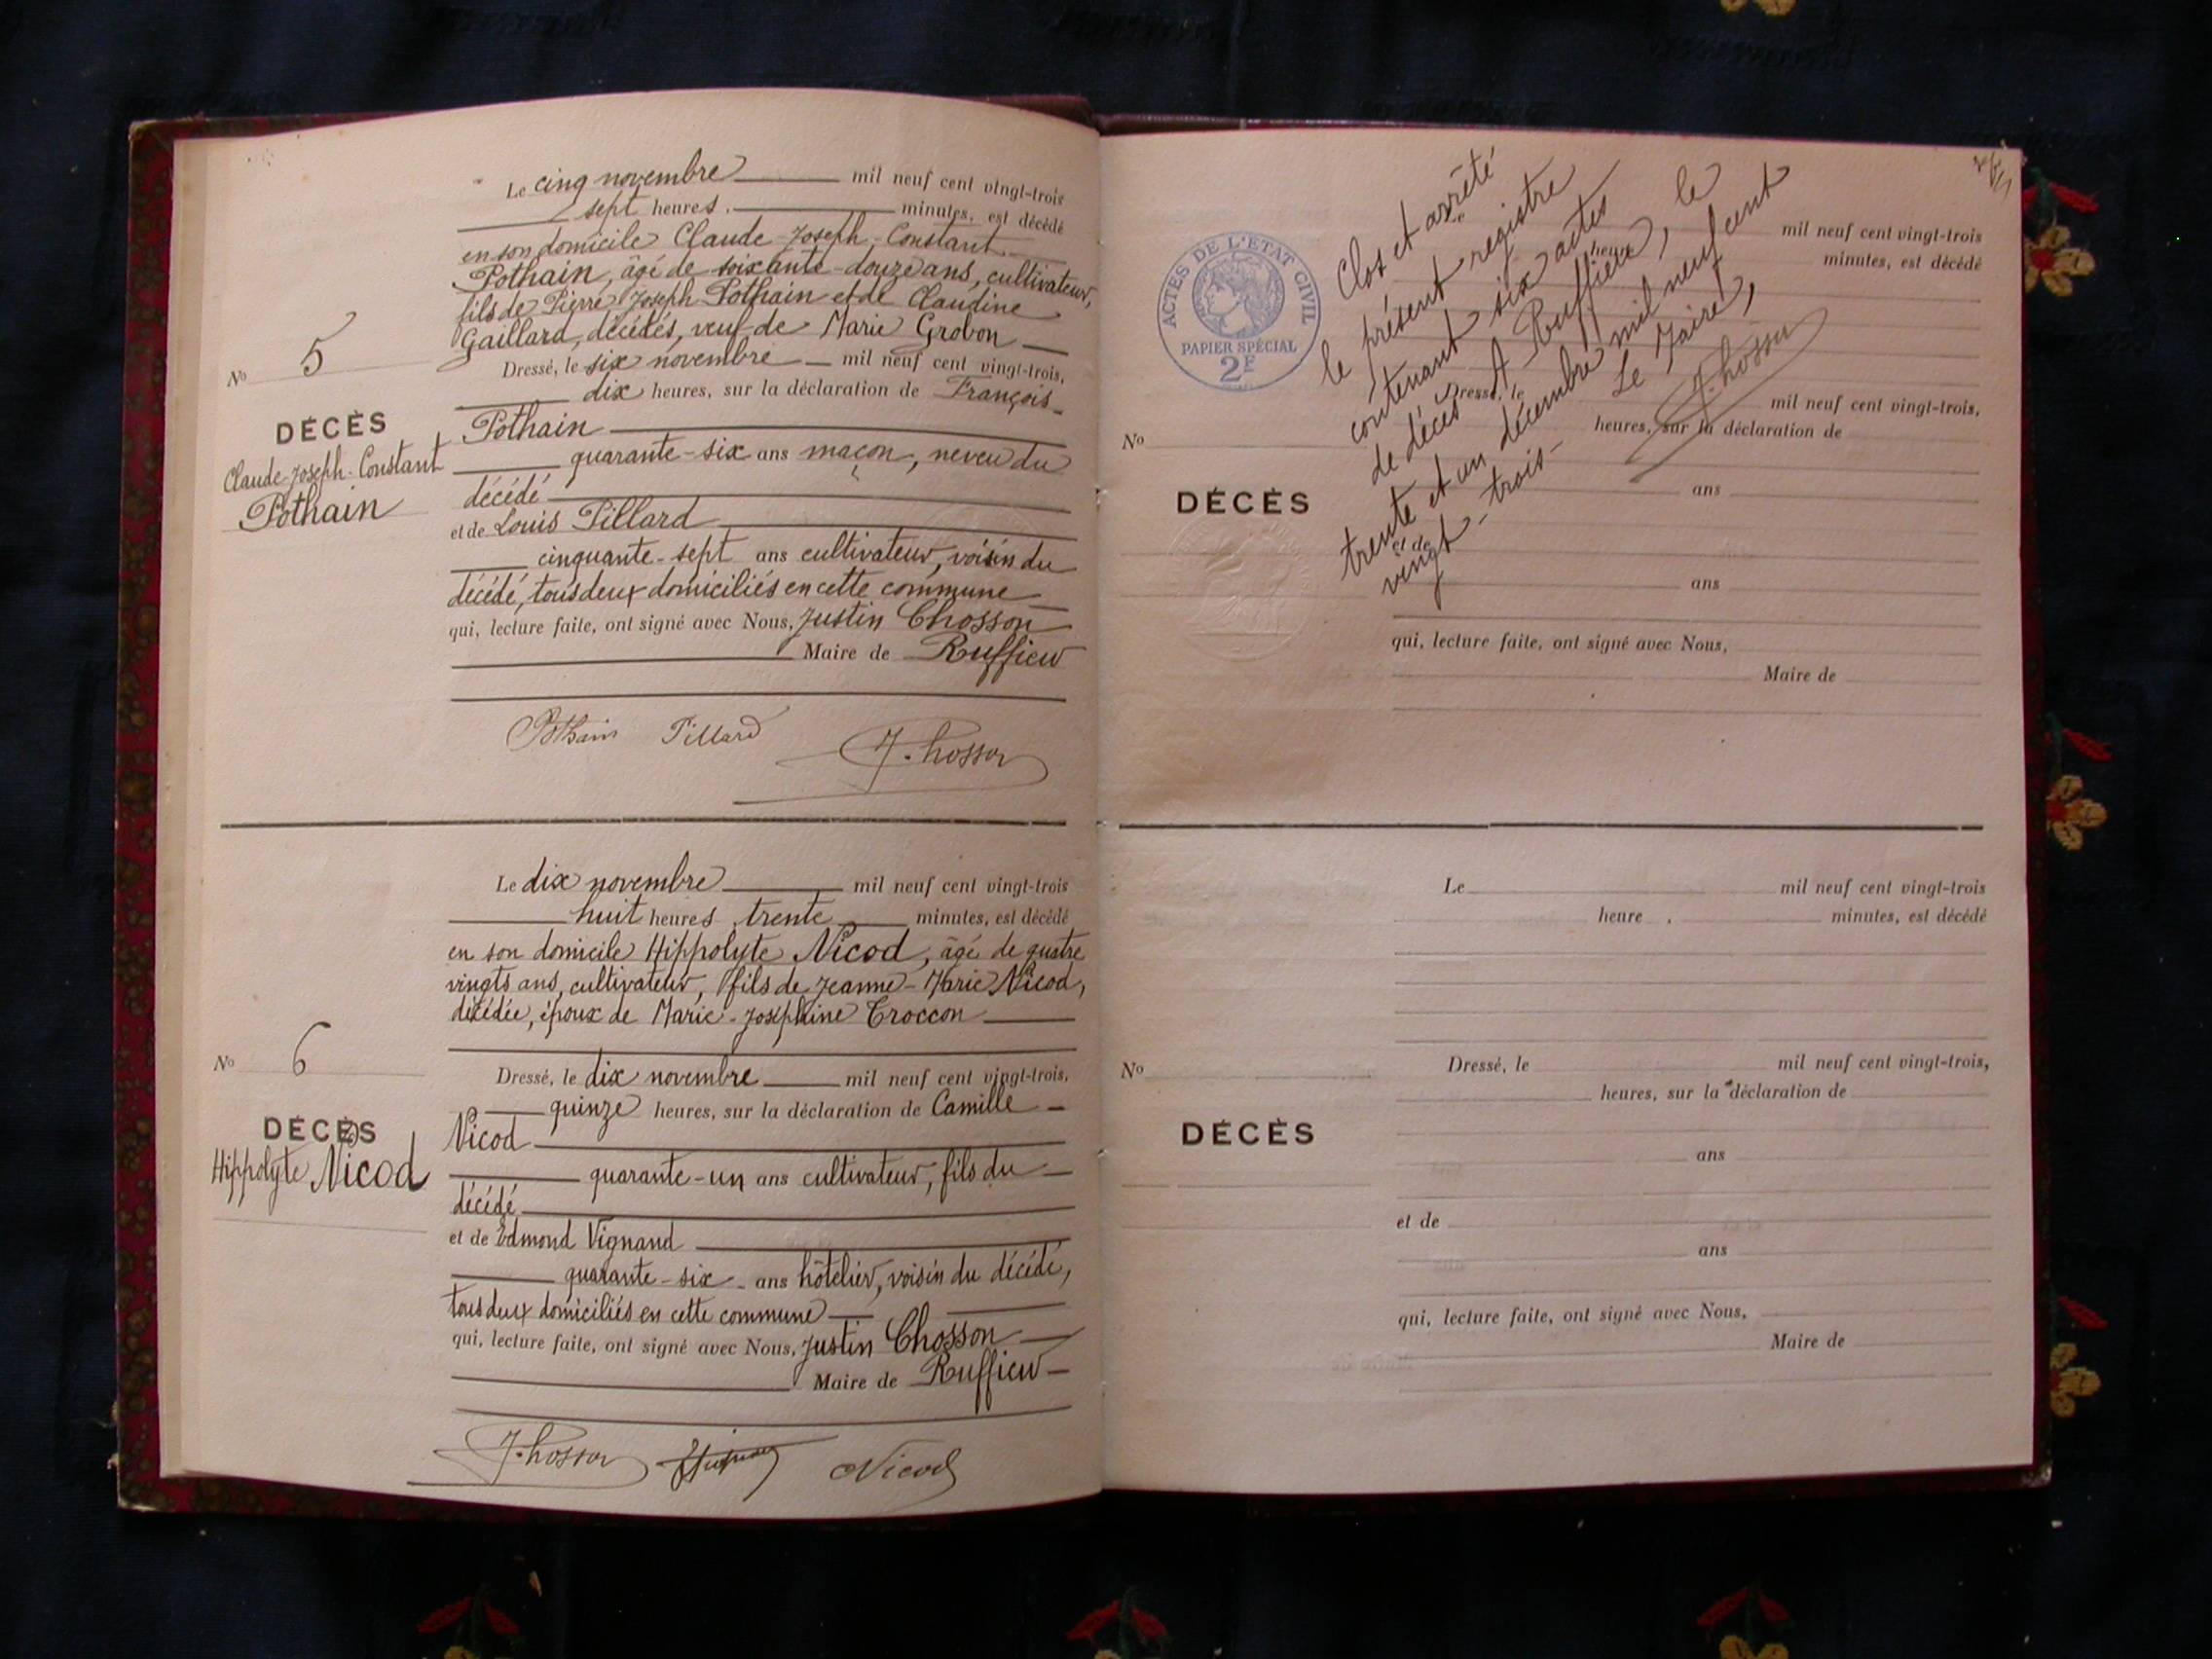 Le cinq novembre mil neuf cent vingt-trois
sept heures . minutes, est décédé
en son domicile Claude-Joseph-Constant
Pothain, âgé de soixante-douze ans, cultivateur,
fils de Pierre-Joseph Pothain et de Claudine
Gaillard, décédés, veuf de Marie Grobon
Dressé, le six novembre mil neuf cent vingt-trois,
dix heures, sur la déclaration de François
Pothain
quarante-six ans maçon, neveu du
décédé
et de Louis Pillard
cinquante-sept ans cultivateur, voisin du
décédé, tous deux domiciliés en cette commune
qui, lecture faite, ont signé avec Nous, Justin Chosson
Maire de Ruffieu
No 5
DÉCÈS
Claude-Joseph-Constant
Pothain
Pothain Pillard J. Chosson
Le dix novembre mil neuf cent vingt-trois
huit heures, trente minutes, est décédé
en son domicile Hippolyte Nicod, âgé de quatre
vingts ans, cultivateur, fils de Jeanne-Marie Nicod,
décédée, époux de Marie-Joséphine Troccon
Dressé, le dix novembre mil neuf cent vingt-trois,
quinze heures, sur la déclaration de Camille
Nicod
quarante-un ans cultivateur, fils du
décédé
et de Edmond Vignand
quarante-six ans hôtelier, voisin du décédé,
tous deux domiciliés en cette commune
qui, lecture faite, ont signé avec Nous, Justin Chosson
Maire de Ruffieu
No 6
DÉCÈS
Hippolyte Nicod
J. Chosson Nicod
ACTES DE L'ETAT CIVIL
PAPIER SPÉCIAL
2F
Clos et arrêté
le présent registre
contenant six actes
de décès A Ruffieu, le
trente et un décembre mil neuf cent
vingt-trois-
Le Maire,
J. Chosson
Le mil neuf cent vingt-trois
heure minutes, est décédé
Dressé, le mil neuf cent vingt-trois,
heures, sur la déclaration de
No
DÉCÈS
ans
et de
ans
qui, lecture faite, ont signé avec Nous,
Maire de
Le mil neuf cent vingt-trois
heure . minutes, est décédé
No
Dressé, le mil neuf cent vingt-trois,
heures, sur la déclaration de
DÉCÈS
ans
et de
ans
qui, lecture faite, ont signé avec Nous,
Maire de